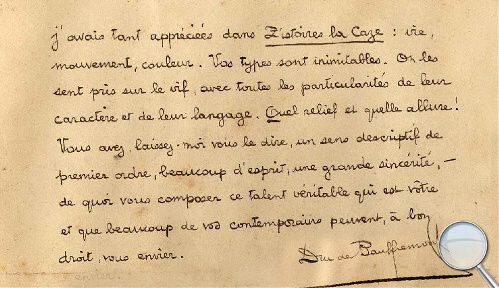 j'avais tant appréciées dans Z'istoires la Caze : vie,
mouvement, couleur. Vos types sont inimitables. On les
sent pris sur le vif, avec toutes les particularités de leur
caractère et de leur langage. Quel relief et quelle allure!
Vous avez, laissez-moi vous le dire, un sens descriptif de
premier ordre, beaucoup d'esprit, une grande sincérité, —
de quoi vous composer ce talent véritable qui est votre
et que beaucoup de vos contemporains peuvent, à bon
droit, vous envier.
Duc de Bauffremont
envier.